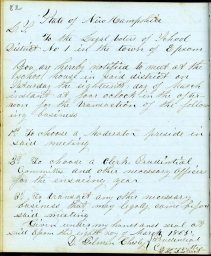 82
State of New Hampshire
To the Legal Voters of School
District No 1 in the town of Epsom
You are hereby notified to meet at the
school house in said district on
Saturday the eighteenth day of March
instant at four oclock in the after-
noon for the transaction of the follow-
ing business
1st To choose a Moderator preside in
said meeting
2d To choose a Clerk, Prudential
Committee and other necessary officers
for the ensueing year
3d To transact any other necessary
business that may legally come before
said meeting
Given under my hand and seal at
said Epsom this day of March
Prudential